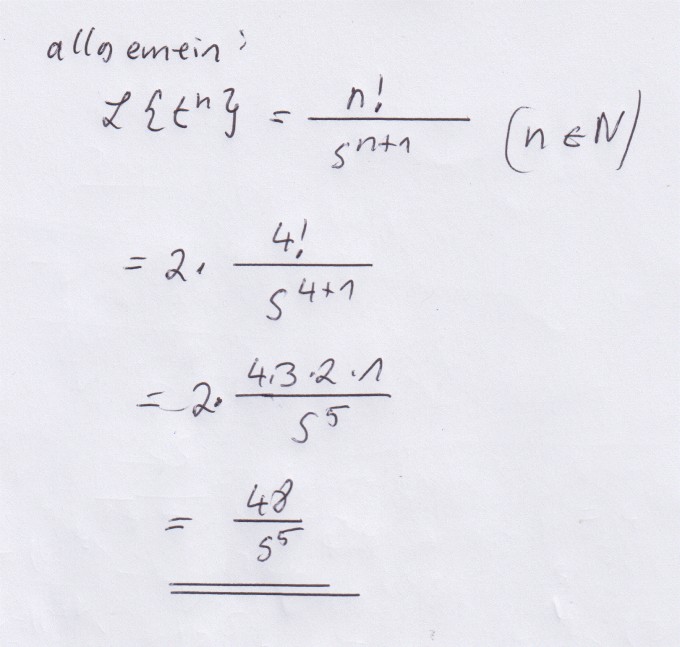 allgemein:
L{t^n} = n!/s^(n+1) (n ∈ N)
= 2 · 4!/s^(4+1)
= 2 · 4·3·2·1/s^5
= 48/s^5